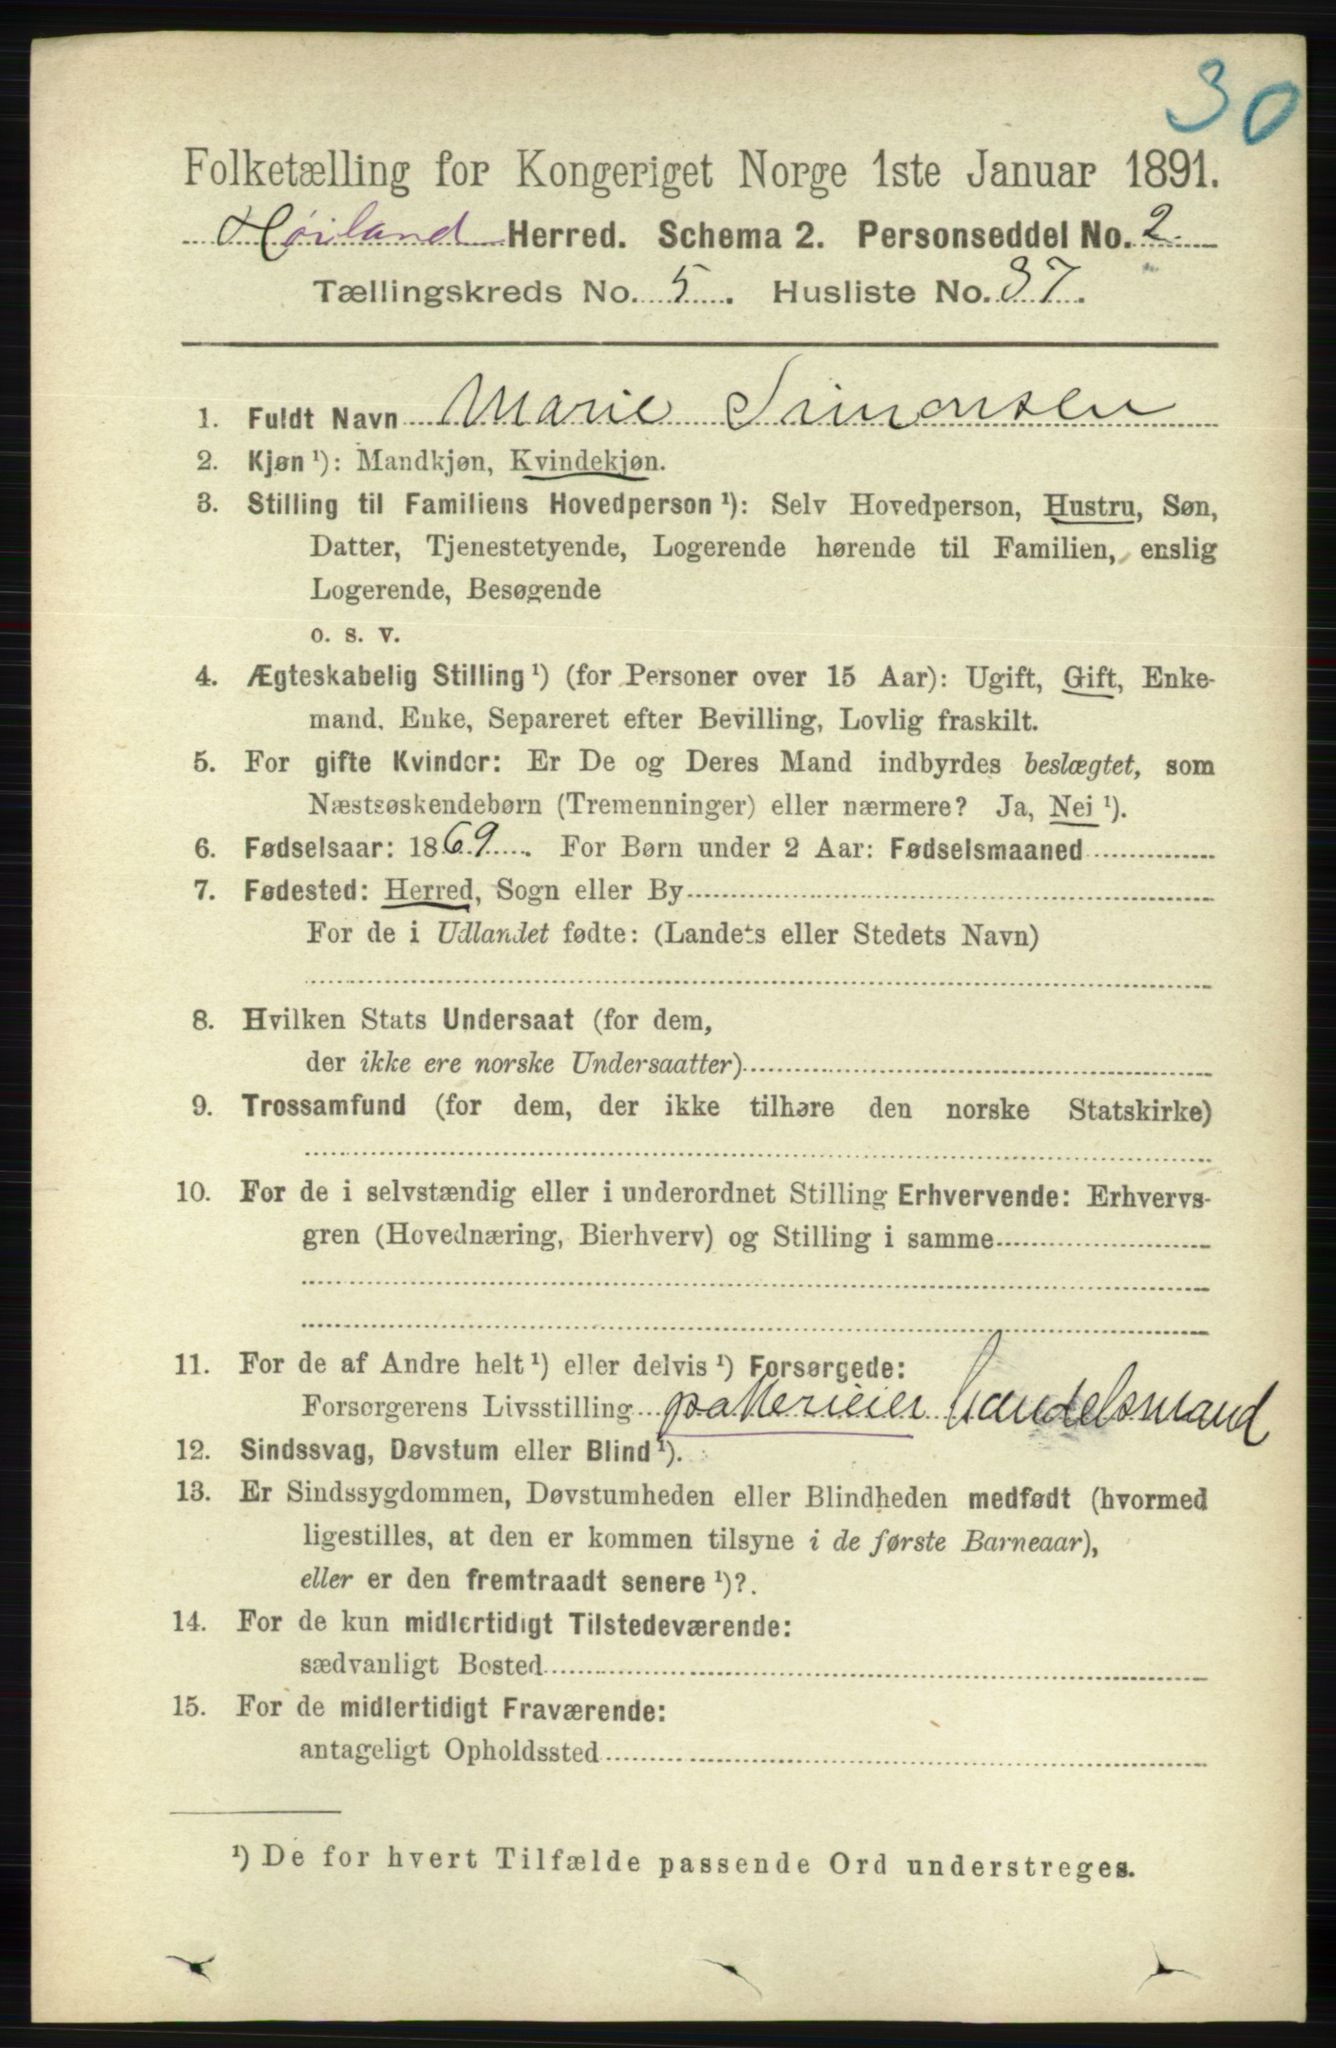 30
Folketælling for Kongeriget Norge 1ste Januar 1891.
Høiland Herred. Schema 2. Personseddel No. 2.
Tællingskreds No. 5. Husliste No. 37.
1. Fuldt Navn Marie Simonsen
2. Kjøn ¹): Mandkjøn, Kvindekjøn.
3. Stilling til Familiens Hovedperson ¹): Selv Hovedperson, Hustru, Søn,
Datter, Tjenestetyende, Logerende hørende til Familien, enslig
Logerende, Besøgende
o. s. v.
4. Ægteskabelig Stilling ¹) (for Personer over 15 Aar): Ugift, Gift, Enke-
mand, Enke, Separeret efter Bevilling, Lovlig fraskilt.
5. For gifte Kvinder: Er De og Deres Mand indbyrdes beslægtet, som
Næstsøskendebørn (Tremenninger) eller nærmere? Ja, Nei ¹).
6. Fødselsaar: 1869. For Børn under 2 Aar: Fødselsmaaned
7. Fødested: Herred, Sogn eller By
For de i Udlandet fødte: (Landets eller Stedets Navn)
8. Hvilken Stats Undersaat (for dem,
der ikke ere norske Undersaatter)
9. Trossamfund (for dem, der ikke tilhøre den norske Statskirke)
10. For de i selvstændig eller i underordnet Stilling Erhvervende: Erhvervs-
gren (Hovednæring, Bierhverv) og Stilling i samme
11. For de af Andre helt ¹) eller delvis ¹) Forsørgede:
Forsørgerens Livsstilling potterieier handelsmand
12. Sindssvag, Døvstum eller Blind ¹).
13. Er Sindssygdommen, Døvstumheden eller Blindheden medfødt (hvormed
ligestilles, at den er kommen tilsyne i de første Barneaar),
eller er den fremtraadt senere ¹)?.
14. For de kun midlertidigt Tilstedeværende:
sædvanligt Bosted
15. For de midlertidigt Fraværende:
antageligt Opholdssted
¹) De for hvert Tilfælde passende Ord understreges.